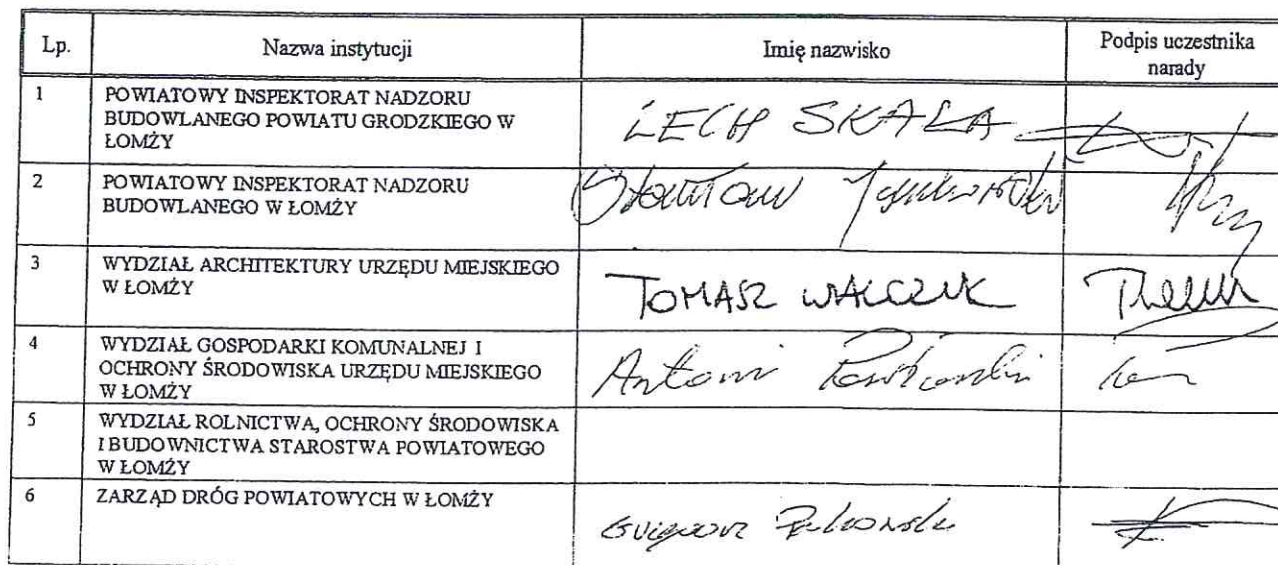 Lp. Nazwa instytucji Imię nazwisko Podpis uczestnika
narady
1 POWIATOWY INSPEKTORAT NADZORU
BUDOWLANEGO POWIATU GRODZKIEGO W
ŁOMŻY
LECH SKAŁA
2 POWIATOWY INSPEKTORAT NADZORU
BUDOWLANEGO W ŁOMŻY
Stanisław
3 WYDZIAŁ ARCHITEKTURY URZĘDU MIEJSKIEGO
W ŁOMŻY
TOMASZ WALCZUK
4 WYDZIAŁ GOSPODARKI KOMUNALNEJ I
OCHRONY ŚRODOWISKA URZĘDU MIEJSKIEGO
W ŁOMŻY
Antoni
5 WYDZIAŁ ROLNICTWA, OCHRONY ŚRODOWISKA
I BUDOWNICTWA STAROSTWA POWIATOWEGO
W ŁOMŻY
6 ZARZĄD DRÓG POWIATOWYCH W ŁOMŻY